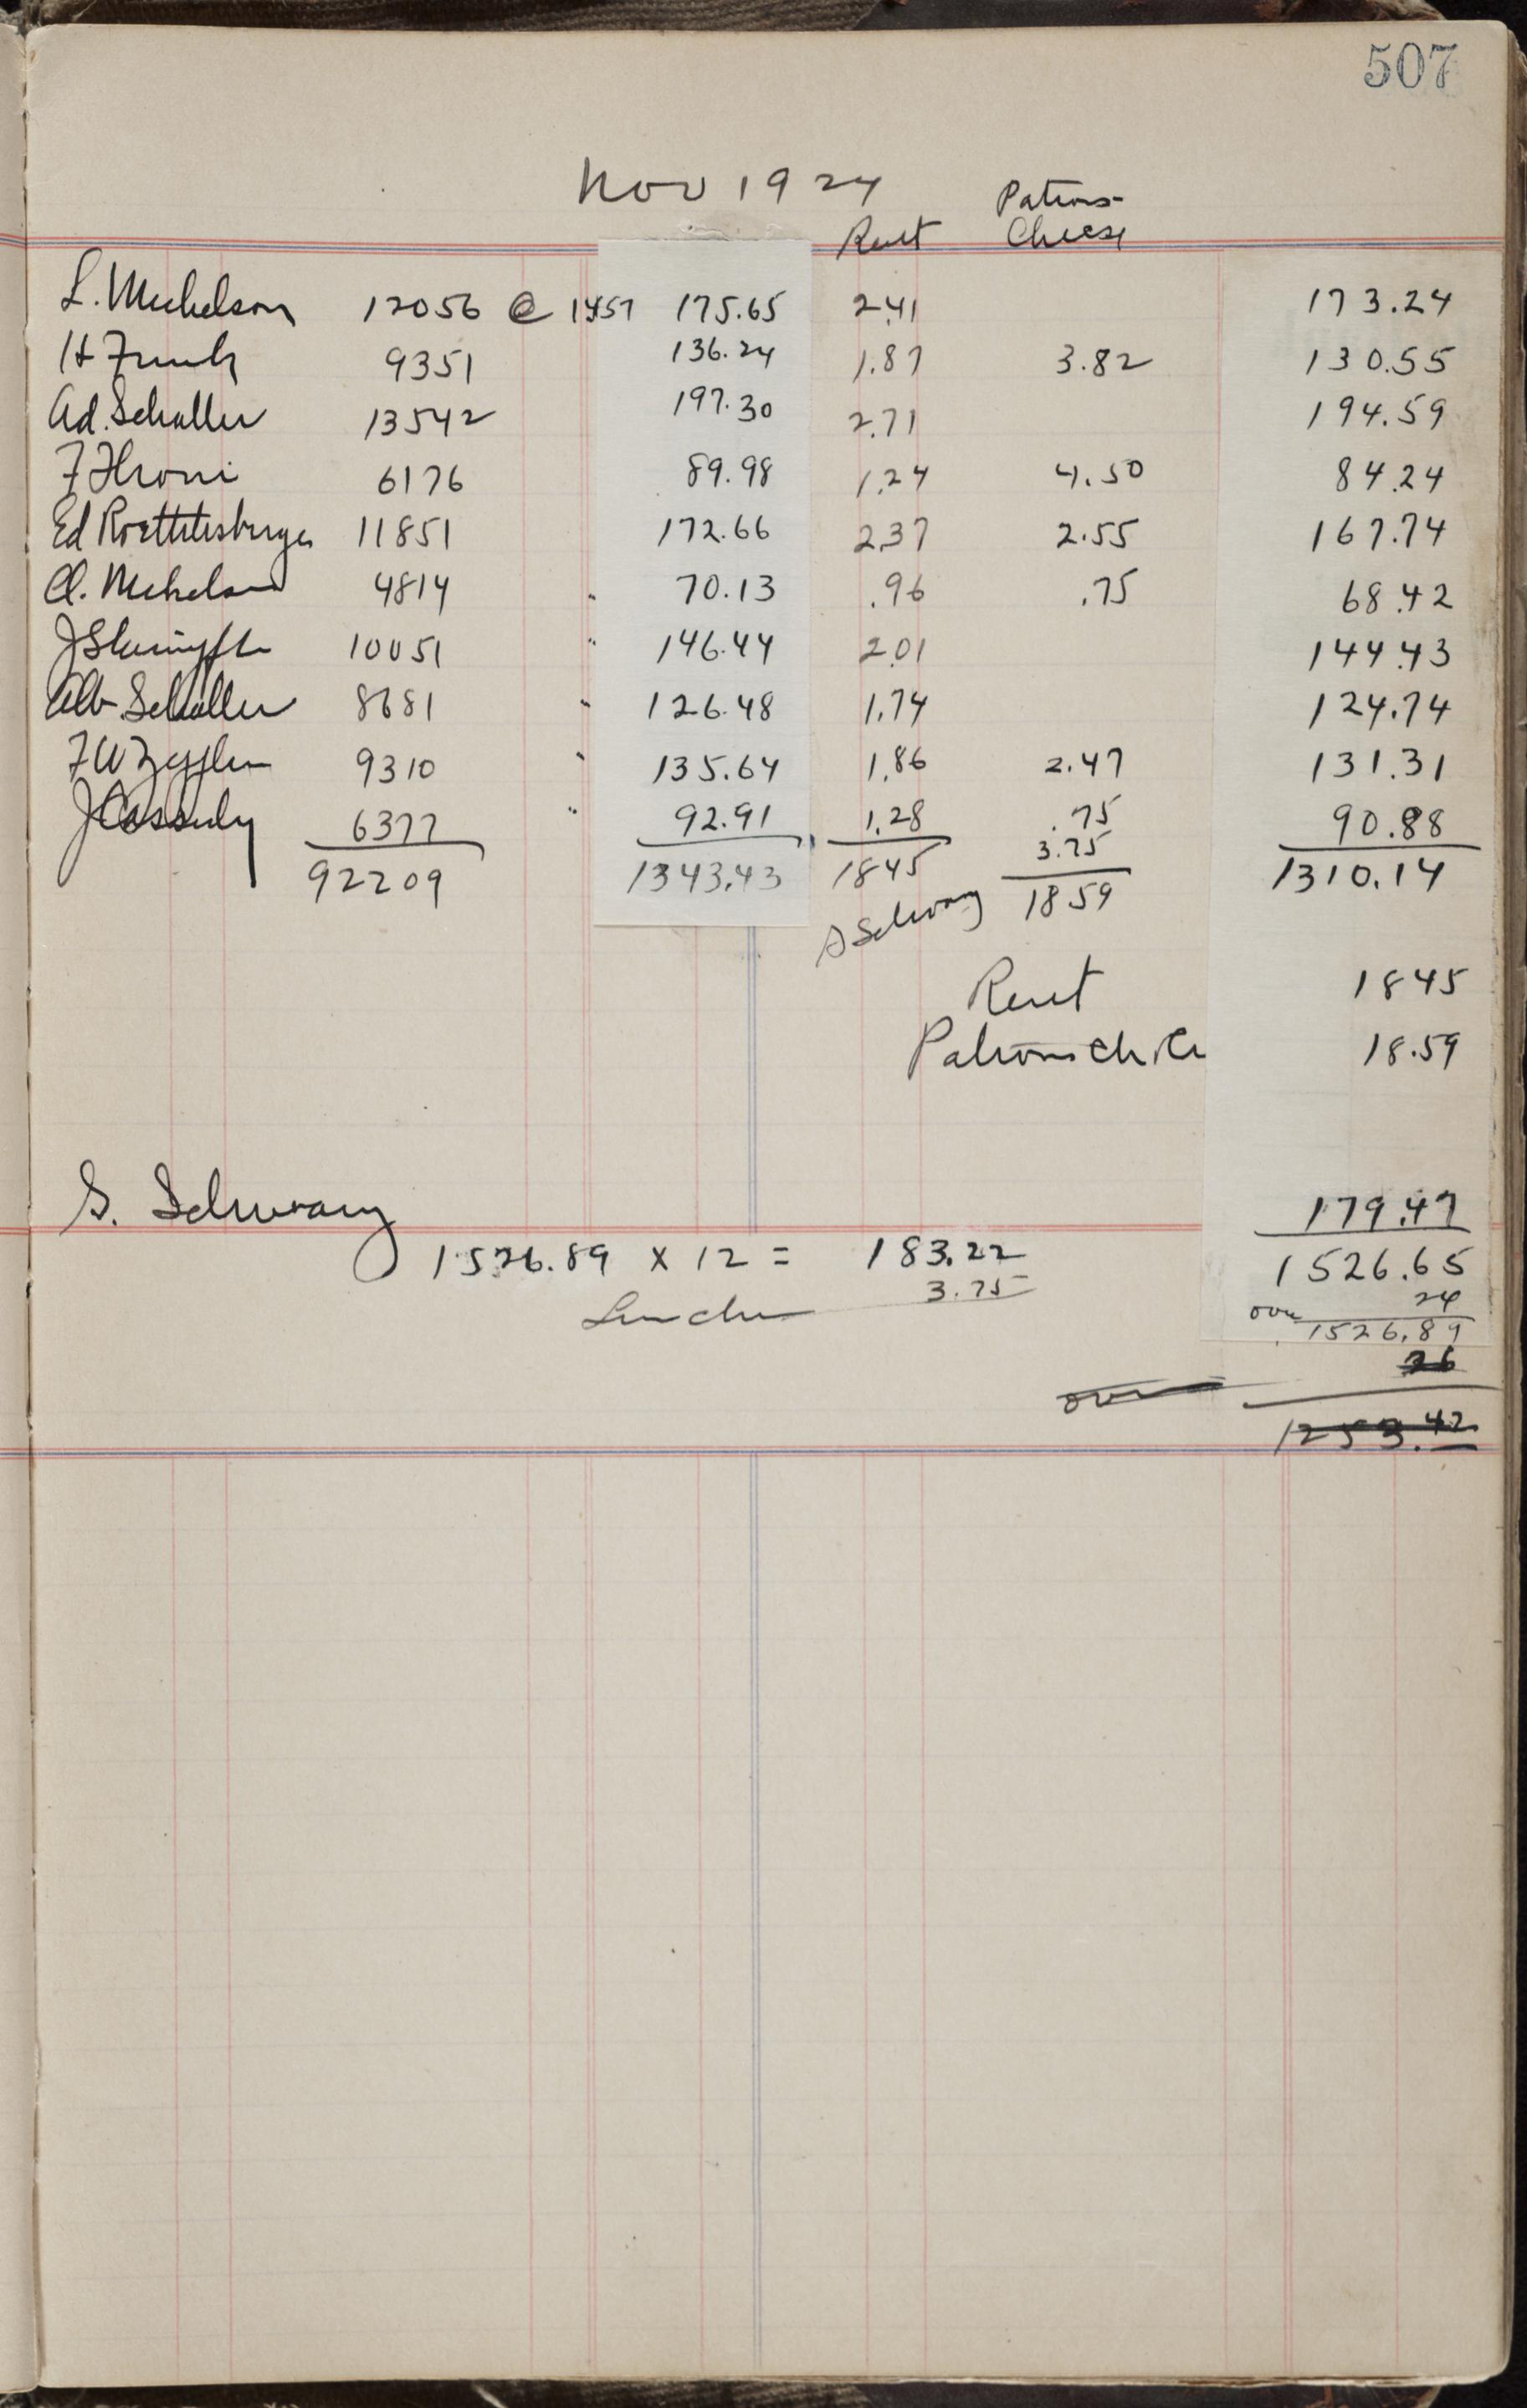 507
Nov 1924
Rent Patrons Cheese
L. Michelson 12056 @ 1457 175.65 2.41 173.24
H Funk 9351 136.24 1.87 3.82 130.55
Ad. Schaller 13542 197.30 2.71 194.59
F 6176 89.98 1.24 4.50 84.24
Ed Roethlisberger 11851 172.66 2.37 2.55 167.74
Cl. Michelson 4814 " 70.13 .96 .75 68.42
J 10051 " 146.44 2.01 144.43
Alb Schaller 8681 " 126.48 1.74 124.74
F W 9310 " 135.64 1.86 2.47 131.31
J Cassidy 6377 " 92.91 1.28 .75 90.88
3.75
92209 1343.43 1845 1859 1310.14
S Schwarz
Rent 1845
Patrons 18.59
S. Schwarz 179.47
1526.89 x 12 = 183.22 1526.65
3.75 over 24
1526.89
over 26
1253.42